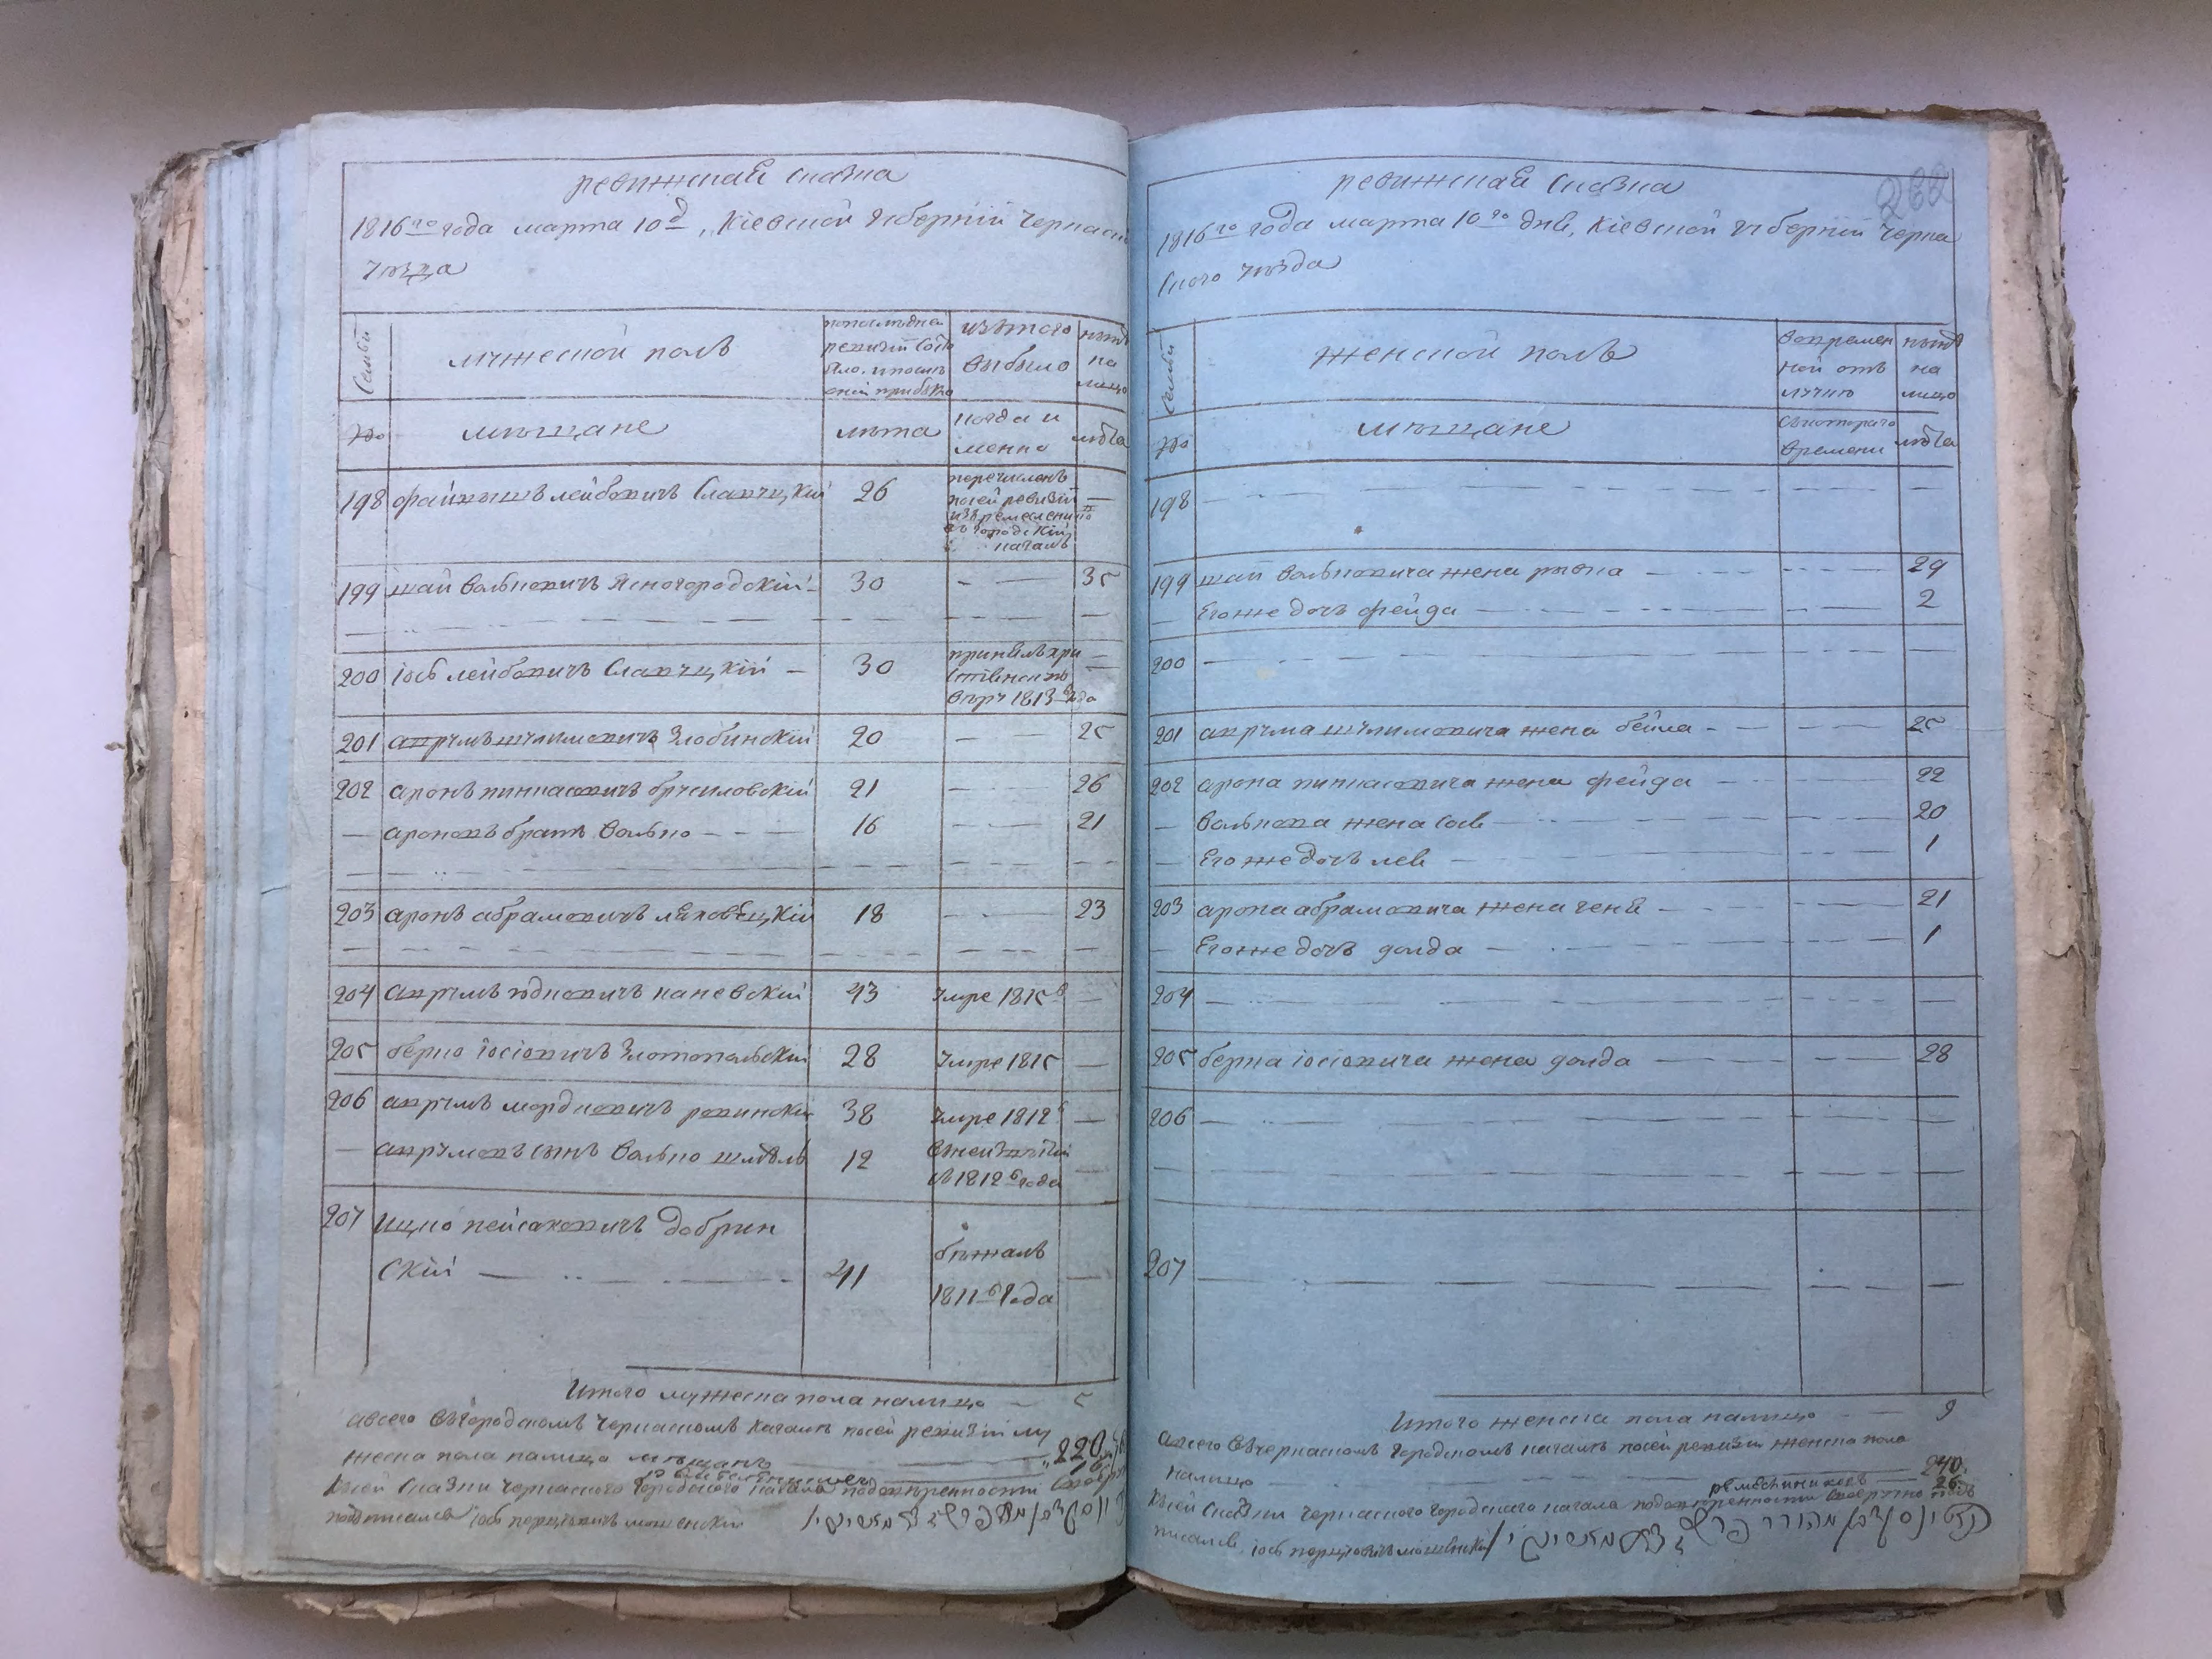 ревижская сказка
1816го года марта 10д, Кіевской губерніи Черкаск
уезда
Семьи
мужеской полъ
по последней ревизіи состояло, и после оной прибыло
изъ того выбыло
ныне на лицо
№
мещане
лета
когда и менно
лета
198 файвишъ лейбовичъ Славуцкій 26 перечисленъ
по сей ревизіи
изъ ремеслениковъ
въ городскій
кагалъ
199 шаи вольковичъ Ясногородскій 30 — 35
200 іось лейбовичъ Славуцкій — 30 принялъ хри
стіенскую
веру 1813 года
201 аврумъ шулимовичъ Злобинскій 20 — 25
202 аронъ пинкасовичъ брусиловскій 21 — 26
— ароновъ братъ волько — 16 — 21
203 аронъ абрамовичъ ляховецкій 18 — 23
204 аврумъ юдковичъ каневскій 43 умре 1815в
205 берко іосіовичъ Злотопольскій 28 умре 1815
206 аврумъ мордковичъ ровинскій 38 умре 1812в
— аврумовъ сынъ волько шмуль 12
въ 1812в года
207 ицко пейсаховичъ добрин
скій — 41 бежалъ
1811в года
Итого мужеска пола налицо — 5
а всего въ городскомъ черкаскомъ кагале по сей ревизіи му
жеска пола налицо мещанъ — 220
16
к сей сказки черкаского городского кагала поверенности
подписался іось перцовичъ мошенскій
ревижская сказка
262
1816го года марта 10го дня, Кіевской губерніи Черка
ского уезда
Семьи
женской полъ
во времен
ной отъ
лучке
ныне
на
лицо
№
мещане
съ котораго
времени
лета
198
199 шаи вольковича жена рывка — 29
Его же дочь фейга — 2
200
201 аврума шулимовича жена бейла — 25
202 арона пинкасовича жена фейга — 22
— волькова жена сося — 20
— Его же дочь лея — 1
203 арона абрамовича жена геня — 21
— Его же дочь голда — 1
204
205 берка іосіовича жена голда — 28
206
207
Итого женска пола налицо — 9
а всего въ черкаскомъ городскомъ кагале по сей ревизіи женска пола
налицо — 240
ремесниковъ — 26
к сей сказки черкаского городского кагала поверенности
писался іось перцовичъ мошенскій